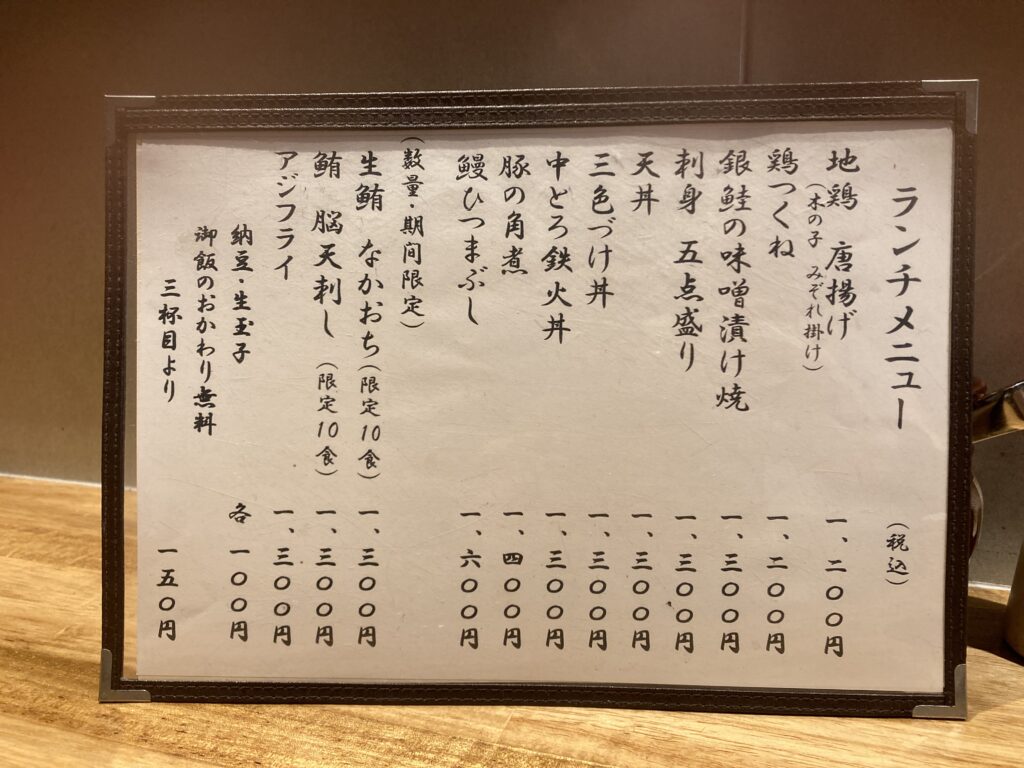 ランチメニュー (税込)
地鶏 唐揚げ 一、二〇〇円
(木の子 みぞれ掛け)
鶏つくね 一、二〇〇円
銀鮭の味噌漬け焼 一、三〇〇円
刺身 五点盛り 一、三〇〇円
天丼 一、三〇〇円
三色づけ丼 一、三〇〇円
中とろ鉄火丼 一、三〇〇円
豚の角煮 一、四〇〇円
鰻ひつまぶし 一、六〇〇円
(数量・期間限定)
生鮪 なかおち(限定10食) 一、三〇〇円
鮪 脳天刺し(限定10食) 一、三〇〇円
アジフライ 一、三〇〇円
納豆・生玉子 各 一〇〇円
御飯のおかわり無料
三杯目より 一五〇円